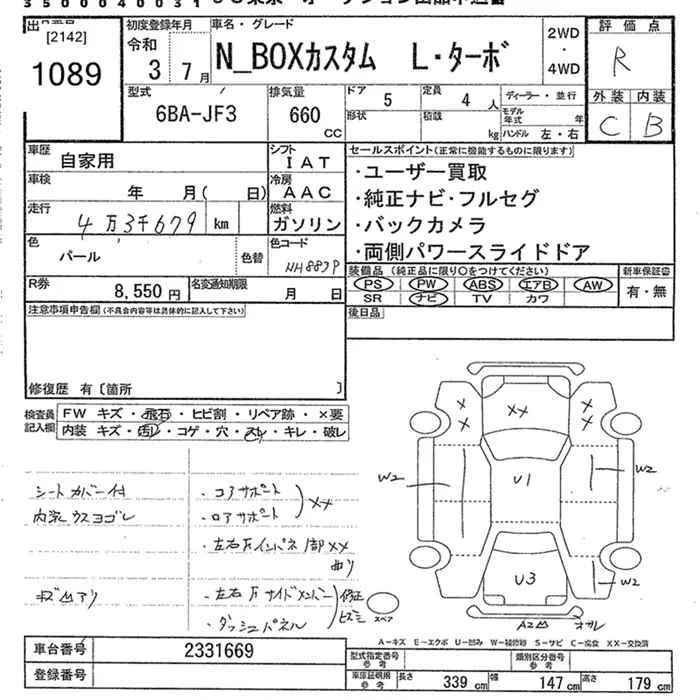 35000040031
[2142]
1089
初度登録年月
令和
3 7月
車名・グレード
N_BOXカスタム L・ターボ
2WD
・
4WD
評価点
R
外装 内装
C B
型式
6BA-JF3
排気量
660
CC
ドア
5
定員
4 人
ディーラー・並行
形状
積載
kg
モデル年式 年
ハンドル 左・右
車歴
自家用
シフト
IAT
車検
年 月( 日)
冷房
AAC
走行
4万3千679
km
燃料
ガソリン
色
パール
色替
色コード
NH883P
R券
8,550 円
名変通知期限
月 日
セールスポイント(正常に機能するものに限ります)
・ユーザー買取
・純正ナビ・フルセグ
・バックカメラ
・両側パワースライドドア
装備品 (純正品に限り○をつけてください)
PS PW ABS エアB AW
SR ナビ TV カワ
新車保証書
有・無
後日品
注意事項申告欄(不具合内容等は具体的に記入して下さい)
修復歴 有〔箇所 〕
検査員記入欄
FW キズ・飛石・ヒビ割・リペア跡・×要
内装 キズ・汚レ・コゲ・穴・スレ・キレ・破レ
シートカバー付
内装ウスヨゴレ
キズ凹アリ
・コアサポート
・ロアサポート
XX
・左右Fインパネ 1部XX
曲り
・左右Fサイドメンバー
・ダッシュパネル
修正
スペア
X
X
XX
X
X
W2
U1
W2
U3
W2
A2凹
オサレ
A-キズ E-エクボ U-凹み W-補修跡 S-サビ C-腐食 XX-交換済
車台番号
2331669
登録番号
型式指定番号
参考
類別区分番号
参考
車庫証明用
参考
長さ
339 cm
幅
147 cm
高さ
179 cm